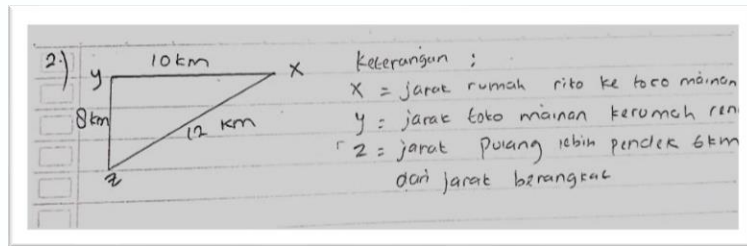 2.) y 10 km x
8 km
12 km
z
Keterangan :
x = jarak rumah rito ke toco mainan
y = jarak toko mainan kerumah ren
z = jarak pulang lebih pendek 6km
dari jarak berangkat